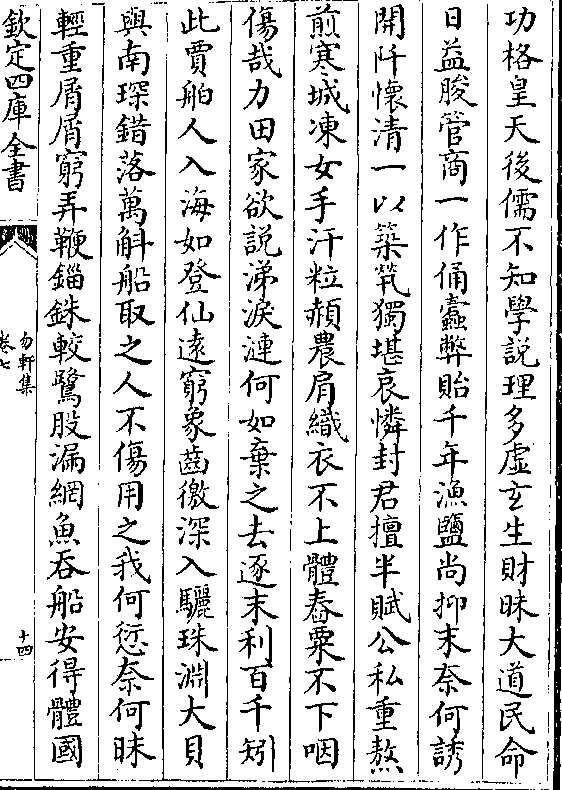 功格皇天後儒不知學說理多虛玄生財昧大道民命
日益朘管商一作俑蠧弊貽千年漁鹽尚抑末奈何誘
開阡懷清一以築煢獨堪哀憐封君擅半賦公私重熬
煎寒城凍女手汗粒赬農肩織衣不上體舂粟不下咽
傷哉力田家欲說涕淚漣何如棄之去逐末利百千矧
此賈舶人入海如登仙逺窮象齒徼深入驪珠淵大貝
與南琛錯落萬斛船取之人不傷用之我何愆奈何昧
輕重屑屑窮弄鞭錙銖較鷺股漏網魚吞船安得體國
欽定四庫全書
勿軒集
卷七
十四